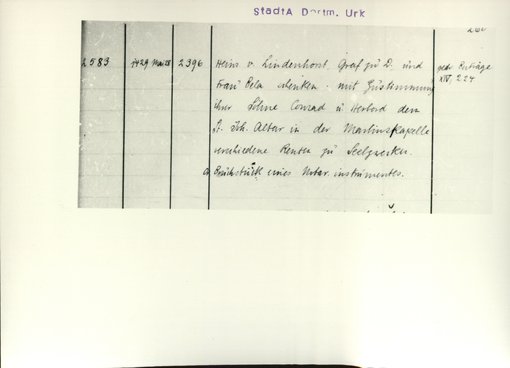 StadtA Dortm. Urk
2583 1429 Mai 28 2396 Heinr. v. Lindenhorst, Graf zu D. und gedr. Beiträge
Frau Bela schenken mit Zustimmung XIV, 224
ihrer Söhne Conrad u Herbord dem
St. Joh. Altar in der Martinskapelle
verschiedene Renten zu Seelzwecken.
a Bruchstück eines Notar. instrumentes.